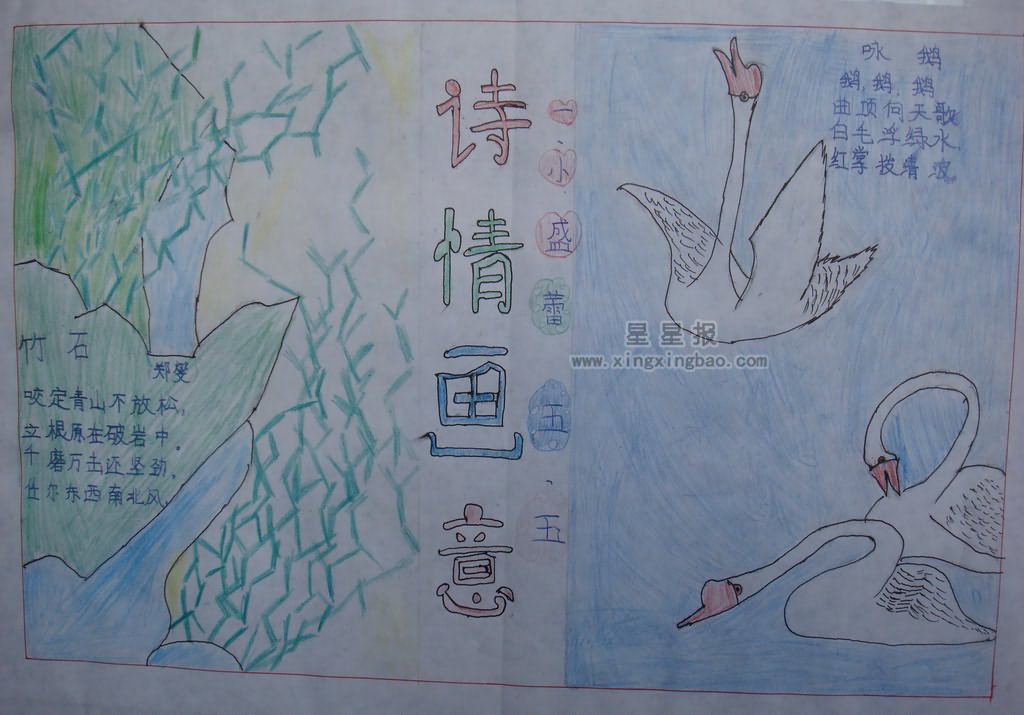 竹 石
郑燮
咬定青山不放松，
立根原在破岩中。
千磨万击还坚劲，
任尔东西南北风
诗情画意
一、小盛蕾五、五
咏 鹅
鹅，鹅，鹅
曲项向天歌
白毛浮绿水
红掌拨清波
星星报
www.xingxingbao.com